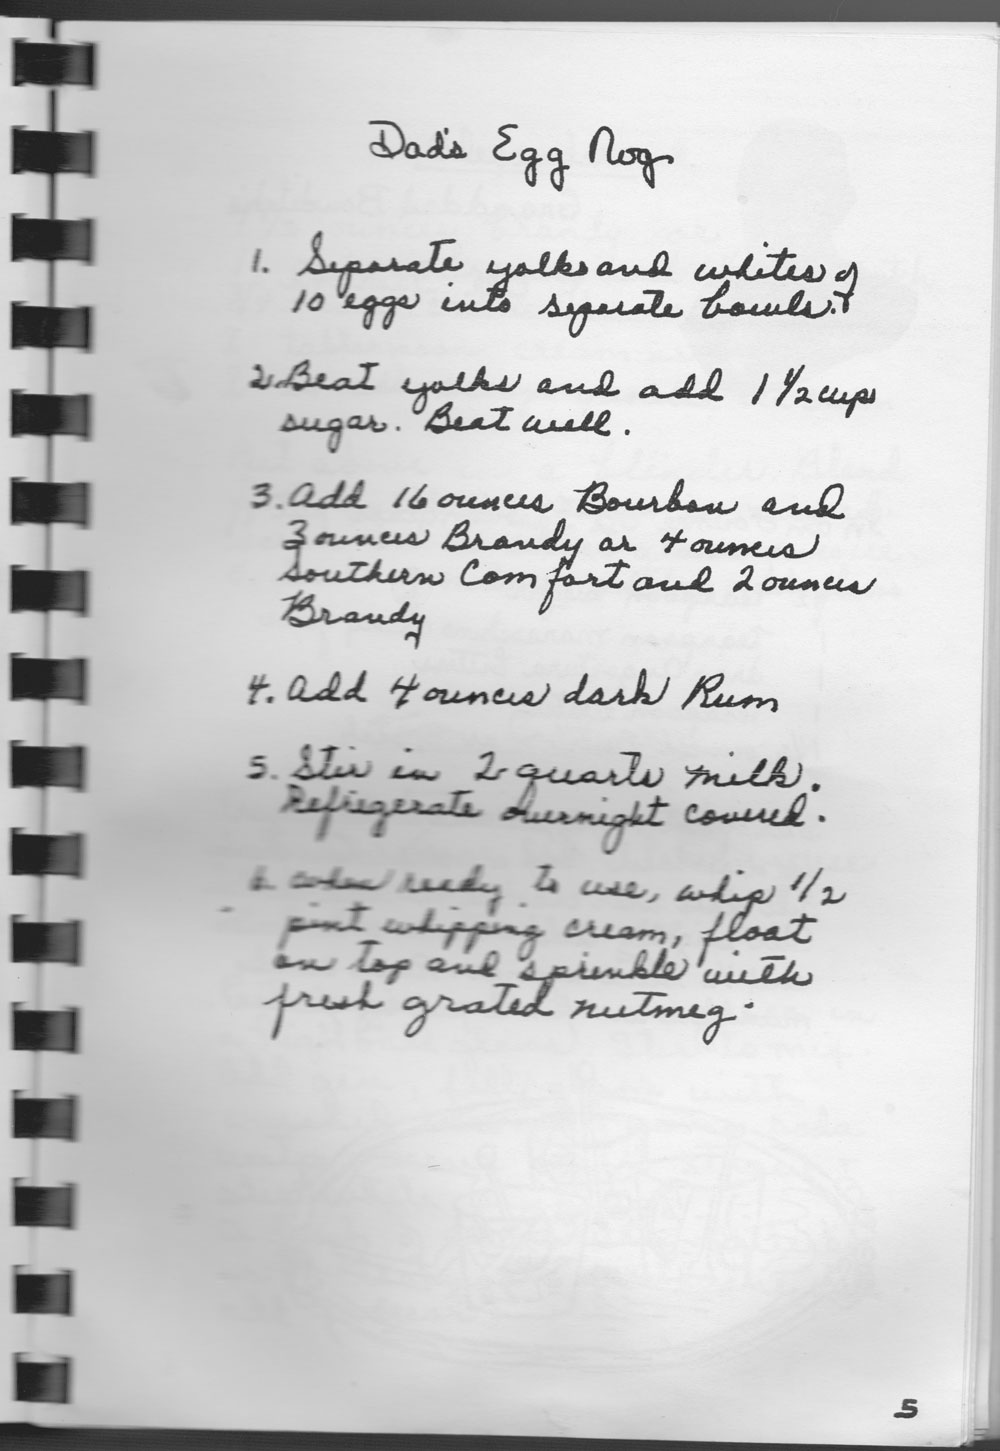 Dad's Egg Nog
1. Separate yolks and whites of
10 eggs into separate bowls.
2. Beat yolks and add 1 1/2 cups
sugar. Beat well.
3. Add 16 ounces Bourbon and
3 ounces Brandy or 4 ounces
Southern Comfort and 2 ounces
Brandy
4. Add 4 ounces dark Rum
5. Stir in 2 quarts milk.
Refrigerate overnight covered.
6. When ready to use, whip 1/2
pint whipping cream, float
on top and sprinkle with
fresh grated nutmeg.
5